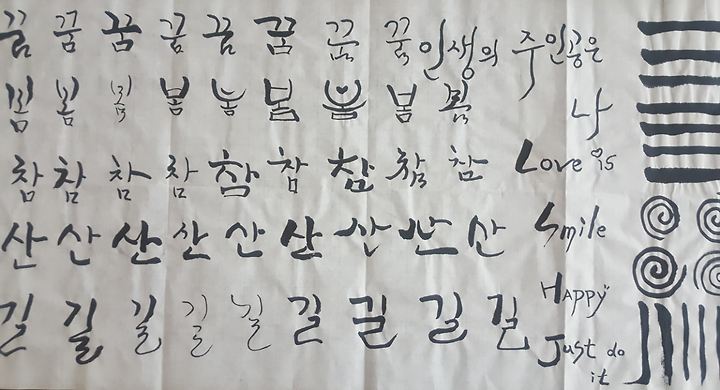 꿈 꿈 꿈 꿈 꿈 꿈 꿈 꿈 인생의 주인공은
봄 봄 봄 봄 봄 봄 봄 봄 나
참 참 참 참 참 참 참 참 참 Love is
산 산 산 산 산 산 산 산 산 Smile
길 길 길 길 길 길 길 길 길 Happy
Just do
it